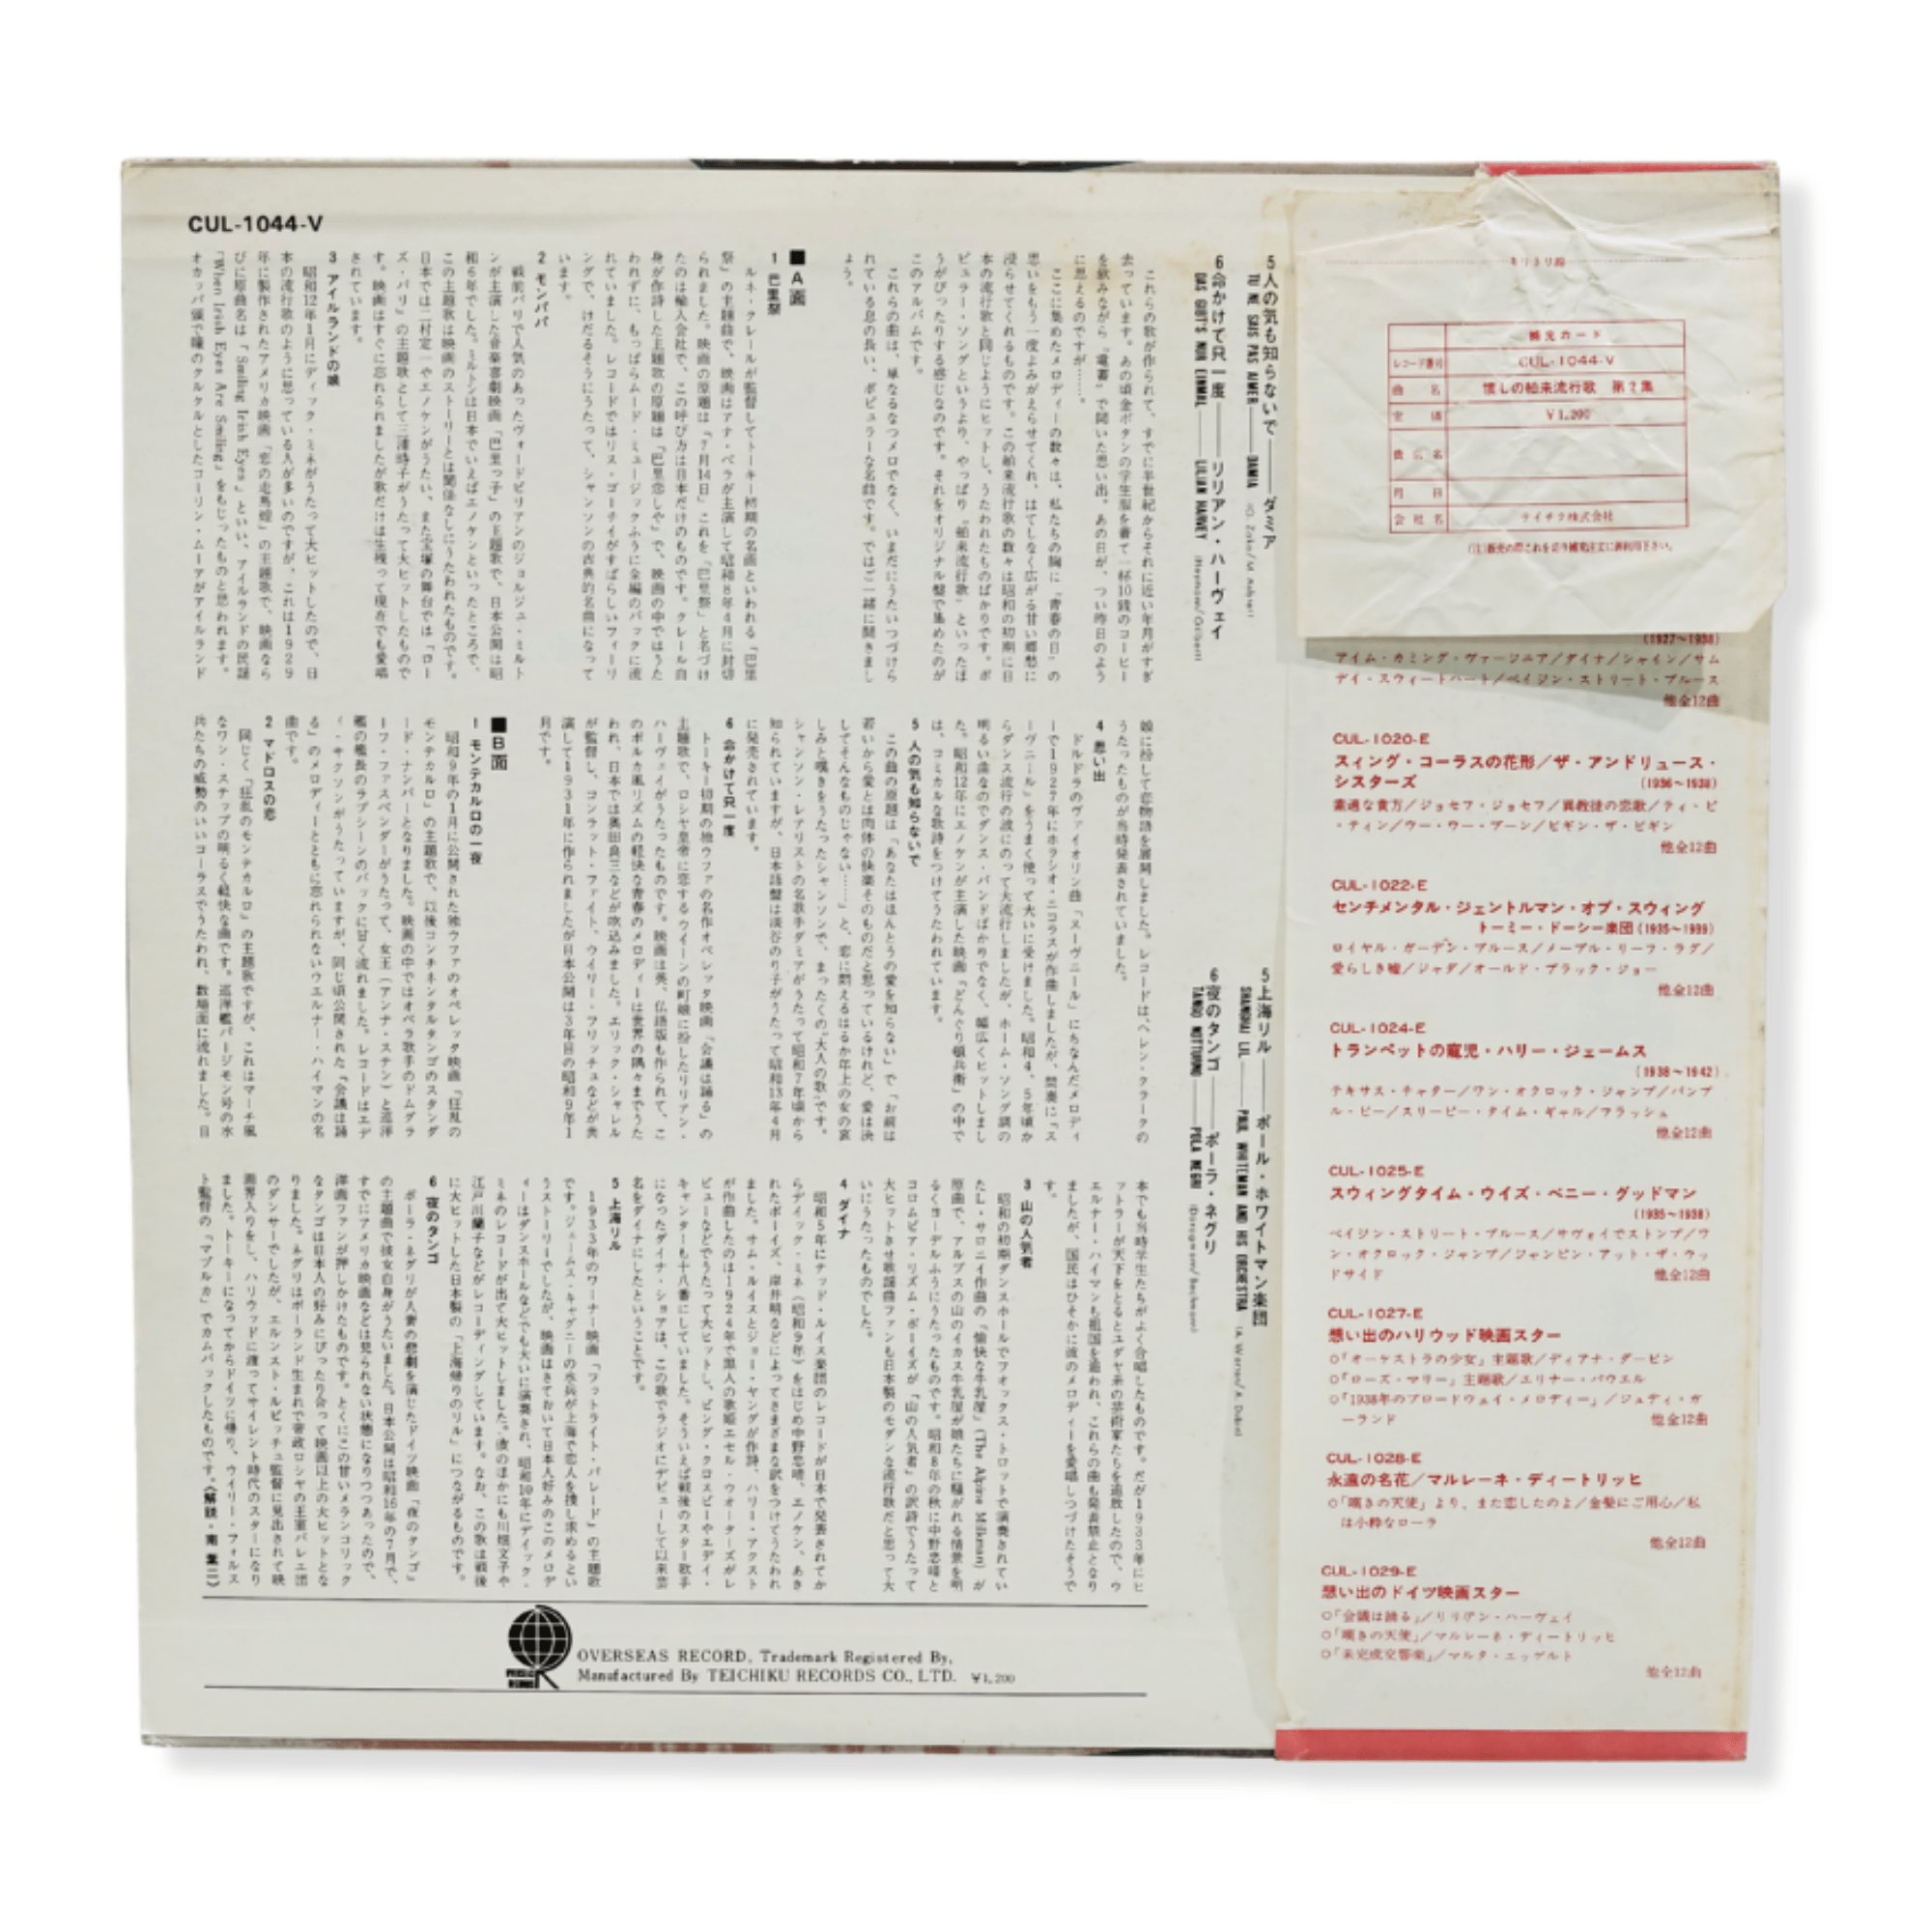 CUL-1044-V
5 人の気も知らないで――ダミア
TU NE SAIS PAS AIMER――DAMIA
6 命かけて只一度――リリアン・ハーヴェイ
DAS GIBT'S NUR EINMAL――LILIAN HARVEY
5 上海リル――ポール・ホワイトマン楽団
SHANGHAI LIL――PAUL WHITEMAN AND HIS ORCHESTRA
6 夜のタンゴ――ポーラ・ネグリ
TANGO NOTTURNO――POLA NEGRI
これらの歌が作られて、すでに半世紀からそれに近い年月がすぎ
去っています。あの頃金ボタンの学生服を着て一杯10銭のコーヒー
を飲みながら〝電蓄〟で聞いた思い出。あの日が、つい昨日のよう
に思えるのですが……。
ここに集めたメロディーの数々は、私たちの胸に〝青春の日〟の
思いをもう一度よみがえらせてくれ、はてしなく広がる甘い郷愁に
浸らせてくれるものです。この舶来流行歌の数々は昭和の初期に日
本の流行歌と同じようにヒットし、うたわれたものばかりです。ポ
ピュラー・ソングというより、やっぱり〝舶来流行歌〟といったほ
うがぴったりする感じなのです。それをオリジナル盤で集めたのが
このアルバムです。
これらの曲は、単なるなつメロでなく、いまだにうたいつづけら
れている息の長い、ポピュラーな名曲です。ではご一緒に聞きまし
ょう。
■A面
1 巴里祭
ルネ・クレールが監督してトーキー初期の名画といわれる「巴里
祭」の主題曲で、映画はアナ・ベラが主演して昭和8年4月に封切
られました。映画の原題は「7月14日」これを「巴里祭」と名づけ
たのは輸入会社で、この呼び方は日本だけのものです。クレール自
身が作詩した主題歌の原題は「巴里恋しや」で、映画の中ではうた
われずに、もっぱらムード・ミュージックふうに全編のバックに流
れていました。レコードではリス・ゴーティがすばらしいフィーリ
ングで、けだるそうにうたって、シャンソンの古典的名曲になって
います。
2 モンパパ
戦前パリで人気のあったヴォードビリアンのジョルジュ・ミルト
ンが主演した音楽喜劇映画「巴里っ子」の主題歌で、日本公開は昭
和6年でした。ミルトンは日本でいえばエノケンといったところで、
この主題歌は映画のストーリーとは関係なしにうたわれたものです。
日本では二村定一やエノケンがうたい、また宝塚の舞台では「ロー
ズ・パリ」の主題歌として三浦時子がうたって大ヒットしたもので
す。映画はすぐに忘れられましたが歌だけは生残って現在でも愛唱
されています。
3 アイルランドの娘
昭和12年1月にディック・ミネがうたって大ヒットしたので、日
本の流行歌のように思っている人が多いのですが、これは1929
年に製作されたアメリカ映画「恋の走馬燈」の主題歌で、映画なら
びに原曲名は「Smiling Irish Eyes」といい、アイルランドの民謡
「When Irish Eyes Are Smiling」をもじったものと思われます。
オカッパ頭で瞳のクルクルとしたコーリン・ムーアがアイルランド
娘に扮して恋物語を展開しました。レコードは、ヘレン・クラークの
うたったものが当時発表されていました。
4 思い出
ドルドラのヴァイオリン曲「スーヴニール」にちなんだメロディ
ーで1927年にホラシオ・ニコラスが作曲しましたが、間奏に「ス
ーヴニール」をうまく使って大いに受けました。昭和4、5年頃か
らダンス流行の波にのって大流行しましたが、ホーム・ソング調の
明るい曲なのでダンス・バンドばかりでなく、幅広くヒットしまし
た。昭和12年にエノケンが主演した映画「どんぐり頓兵衛」の中で
は、コミカルな歌詩をつけてうたわれています。
5 人の気も知らないで
この曲の原題は「あなたはほんとうの愛を知らない」で「お前は
若いから愛とは肉体の快楽そのものだと思っているけれど、愛は決
してそんなものじゃない……」と、恋に悶えるはるか年上の女の哀
しみと嘆きをうたったシャンソンで、まったくの〝大人の歌〟です。
シャンソン・レアリストの名歌手ダミアがうたって昭和7年頃から
知られていますが、日本語盤は淡谷のり子がうたって昭和13年4月
に発売されています。
6 命かけて只一度
トーキー初期の独ウファの名作オペレッタ映画「会議は踊る」の
主題歌で、ロシヤ皇帝に恋するウイーンの町娘に扮したリリアン・
ハーヴェイがうたったものです。映画は英、仏語版も作られて、こ
のポルカ風リズムの軽快な青春のメロディーは世界の隅々までうた
われ、日本では奥田良三などが吹込みました。エリック・シャレル
が監督し、コンラット・ファイト、ウイリー・フリッチュなどが共
演して1931年に作られましたが日本公開は3年目の昭和9年1
月です。
■B面
1 モンテカルロの一夜
昭和9年の1月に公開された独ウファのオペレッタ映画「狂乱の
モンテカルロ」の主題歌で、以後コンチネンタルタンゴのスタンダ
ード・ナンバーとなりました。映画の中ではオペラ歌手のドムグラ
ーフ・ファスベンダーがうたって、女王(アンナ・ステン)と巡洋
艦の艦長のラブシーンのバックに甘く流れました。レコードはエデ
ィ・サクソンがうたっていますが、同じ頃公開された「会議は踊
る」のメロディーとともに忘れられないウエルナー・ハイマンの名
曲です。
2 マドロスの恋
同じく「狂乱のモンテカルロ」の主題歌ですが、これはマーチ風
なワン・ステップの明るく軽快な曲です。巡洋艦パージモン号の水
兵たちの威勢のいいコーラスでうたわれ、数場面に流れました。日
本でも当時学生たちがよく合唱したものです。だが1933年にヒ
ットラーが天下をとるとユダヤ系の芸術家たちを追放したので、ウ
エルナー・ハイマンも祖国を追われ、これらの曲も発表禁止となり
ましたが、国民はひそかに彼のメロディーを愛唱しつづけたそうで
す。
3 山の人気者
昭和の初期ダンスホールでフオックス・トロットで演奏されてい
たL・サロニイ作曲の「愉快な牛乳屋」(The Alpine Milkman)が
原曲で、アルプスの山のイカス牛乳屋が娘たちに騒がれる情景を明
るくヨーデルふうにうたったものです。昭和8年の秋に中野忠晴と
コロムビア・リズム・ボーイズが「山の人気者」の訳詩でうたって
大ヒットさせ歌謡曲ファンも日本製のモダンな流行歌だと思って大
いにうたったものでした。
4 ダイナ
昭和5年にテッド・ルイス楽団のレコードが日本で発表されてか
らディック・ミネ(昭和9年)をはじめ中野忠晴、エノケン、あき
れたボーイズ、岸井明などによってさまざまな訳をつけてうたわれ
ました。サム・ルイスとジョー・ヤングが作詩、ハリー・アクスト
が作曲したのは1924年で黒人の歌姫エセル・ウオーターズがレ
ビューなどでうたって大ヒットし、ビング・クロスビーやエディ・
キャンターも十八番にしていました。そういえば戦後のスター歌手
になったダイナ・ショアは、この歌でラジオにデビューして以来芸
名をダイナにしたということです。
5 上海リル
1933年のワーナー映画「フットライト・パレード」の主題歌
です。ジェームス・キャグニーの水兵が上海で恋人を捜し求めるとい
うストーリーでしたが、映画はさておいて日本人好みのこのメロデ
ィーはダンスホールなどでも大いに演奏され、昭和10年にディック・
ミネのレコードが出て大ヒットしました。彼のほかにも川畑文子や
江戸川蘭子などがレコーディングしています。なお、この歌は戦後
に大ヒットした日本製の「上海帰りのリル」につながるものです。
6 夜のタンゴ
ポーラ・ネグリが人妻の悲劇を演じたドイツ映画「夜のタンゴ」
の主題曲で彼女自身がうたいました。日本公開は昭和16年の7月で、
すでにアメリカ映画などは見られない状態になりつつあったので、
洋画ファンが押しかけたものです。とくにこの甘いメランコリック
なタンゴは日本人の好みにぴったり合って映画以上の大ヒットとな
りました。ネグリはポーランド生まれで帝政ロシヤの王室バレエ団
のダンサーでしたが、エルンスト・ルビッチュ監督に見出されて映
画界入りをし、ハリウッドに渡ってサイレント時代のスターになり
ました。トーキーになってからドイツに帰り、ウイリー・フォルス
ト監督の「マヅルカ」でカムバックしたものです。
OVERSEAS RECORD, Trademark Registered By,
Manufactured By TEICHIKU RECORDS CO., LTD. ¥1,200
キリトリ線
補充カード
レコード番号 CUL-1044-V
曲名 懐しの舶来流行歌 第2集
定価 ¥1,200
貴店名
月日
会社名 テイチク株式会社
(1927~1938)
アイム・カミング・ヴァージニア/ダイナ/シャイン/サム
デイ・スウィートハート/ベイジン・ストリート・ブルース
他全12曲
CUL-1020-E
スィング・コーラスの花形/ザ・アンドリュース・
シスターズ (1936~1938)
素適な貴方/ジョセフ・ジョセフ/異教徒の恋歌/ティ・ピ
・ティン/ウー・ウー・ブーン/ビギン・ザ・ビギン
他全12曲
CUL-1022-E
センチメンタル・ジェントルマン・オブ・スウィング
トーミー・ドーシー楽団(1935~1939)
ロイヤル・ガーデン・ブルース/メープル・リーフ・ラグ/
愛らしき嘘/ジャダ/オールド・ブラック・ジョー
他全12曲
CUL-1024-E
トランペットの寵児・ハリー・ジェームス
(1938~1942)
テキサス・チャター/ワン・オクロック・ジャンプ/バンブ
ル・ビー/スリーピー・タイム・ギャル/フラッシュ
他全12曲
CUL-1025-E
スウィングタイム・ウイズ・ベニー・グッドマン
(1935~1938)
ベイジン・ストリート・ブルース/サヴォイでストンプ/ワ
ン・オクロック・ジャンプ/ジャンピン・アット・ザ・ウッ
ドサイド 他全12曲
CUL-1027-E
想い出のハリウッド映画スター
○「オーケストラの少女」主題歌/ディアナ・ダービン
○「ローズ・マリー」主題歌/エリナー・パウエル
○「1938年のブロードウェイ・メロディー」/ジュディ・ガ
ーランド 他全12曲
CUL-1028-E
永遠の名花/マルレーネ・ディートリッヒ
○「嘆きの天使」より、また恋したのよ/金髪にご用心/私
は小粋なローラ
他全12曲
CUL-1029-E
想い出のドイツ映画スター
○「会議は踊る」/リリアン・ハーヴェイ
○「嘆きの天使」/マルレーネ・ディートリッヒ
○「未完成交響楽」/マルタ・エッゲルト
他全12曲